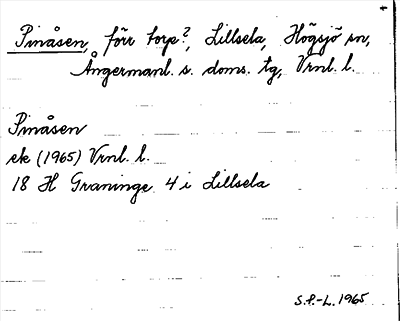 Pinåsen, förr torp?, Lillsela, Högsjö sn,
Ångermanl. s. doms. tg, Vrnl. l.
Pinåsen
ek (1965) Vrnl. l.
18 H Graninge 4 i Lillsela
S.P.-L. 1965